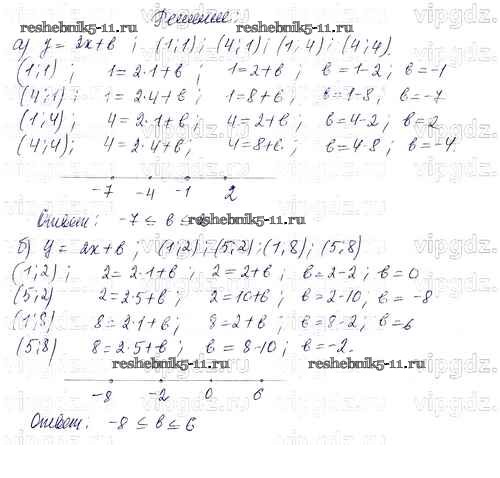 Решение:
reshebnik5-11.ru reshebnik5-11.ru
а) y = 2x+в ; (1;1); (4;1); (1;4); (4;4).
(1;1) ; 1=2·1+в ; 1=2+в ; в=1-2 ; в=-1
(4;1) ; 1=2·4+в ; 1=8+в ; в=1-8, в=-7
(1;4) ; 4=2·1+в ; 4=2+в ; в=4-2 ; в=2
(4;4); 4=2·4+в ; 4=8+в ; в=4-8 ; в=-4
-7 -4 -1 2
Ответ: -7 ≤ в ≤
reshebnik5-11.ru
б) y = 2x+в ; (1;2); (5;2); (1;8); (5;8)
(1;2) ; 2=2·1+в ; 2=2+в ; в=2-2 ; в=0
(5;2) 2=2·5+в ; 2=10+в ; в=2-10, в=-8
(1;8) 8=2·1+в ; 8=2+в ; в=8-2 ; в=6
(5;8) 8=2·5+в ; в=8-10 ; в=-2.
reshebnik5-11.ru reshebnik5-11.ru
-8 -2 0 6
Ответ: -8 ≤ в ≤ 6
vipgdz.ru